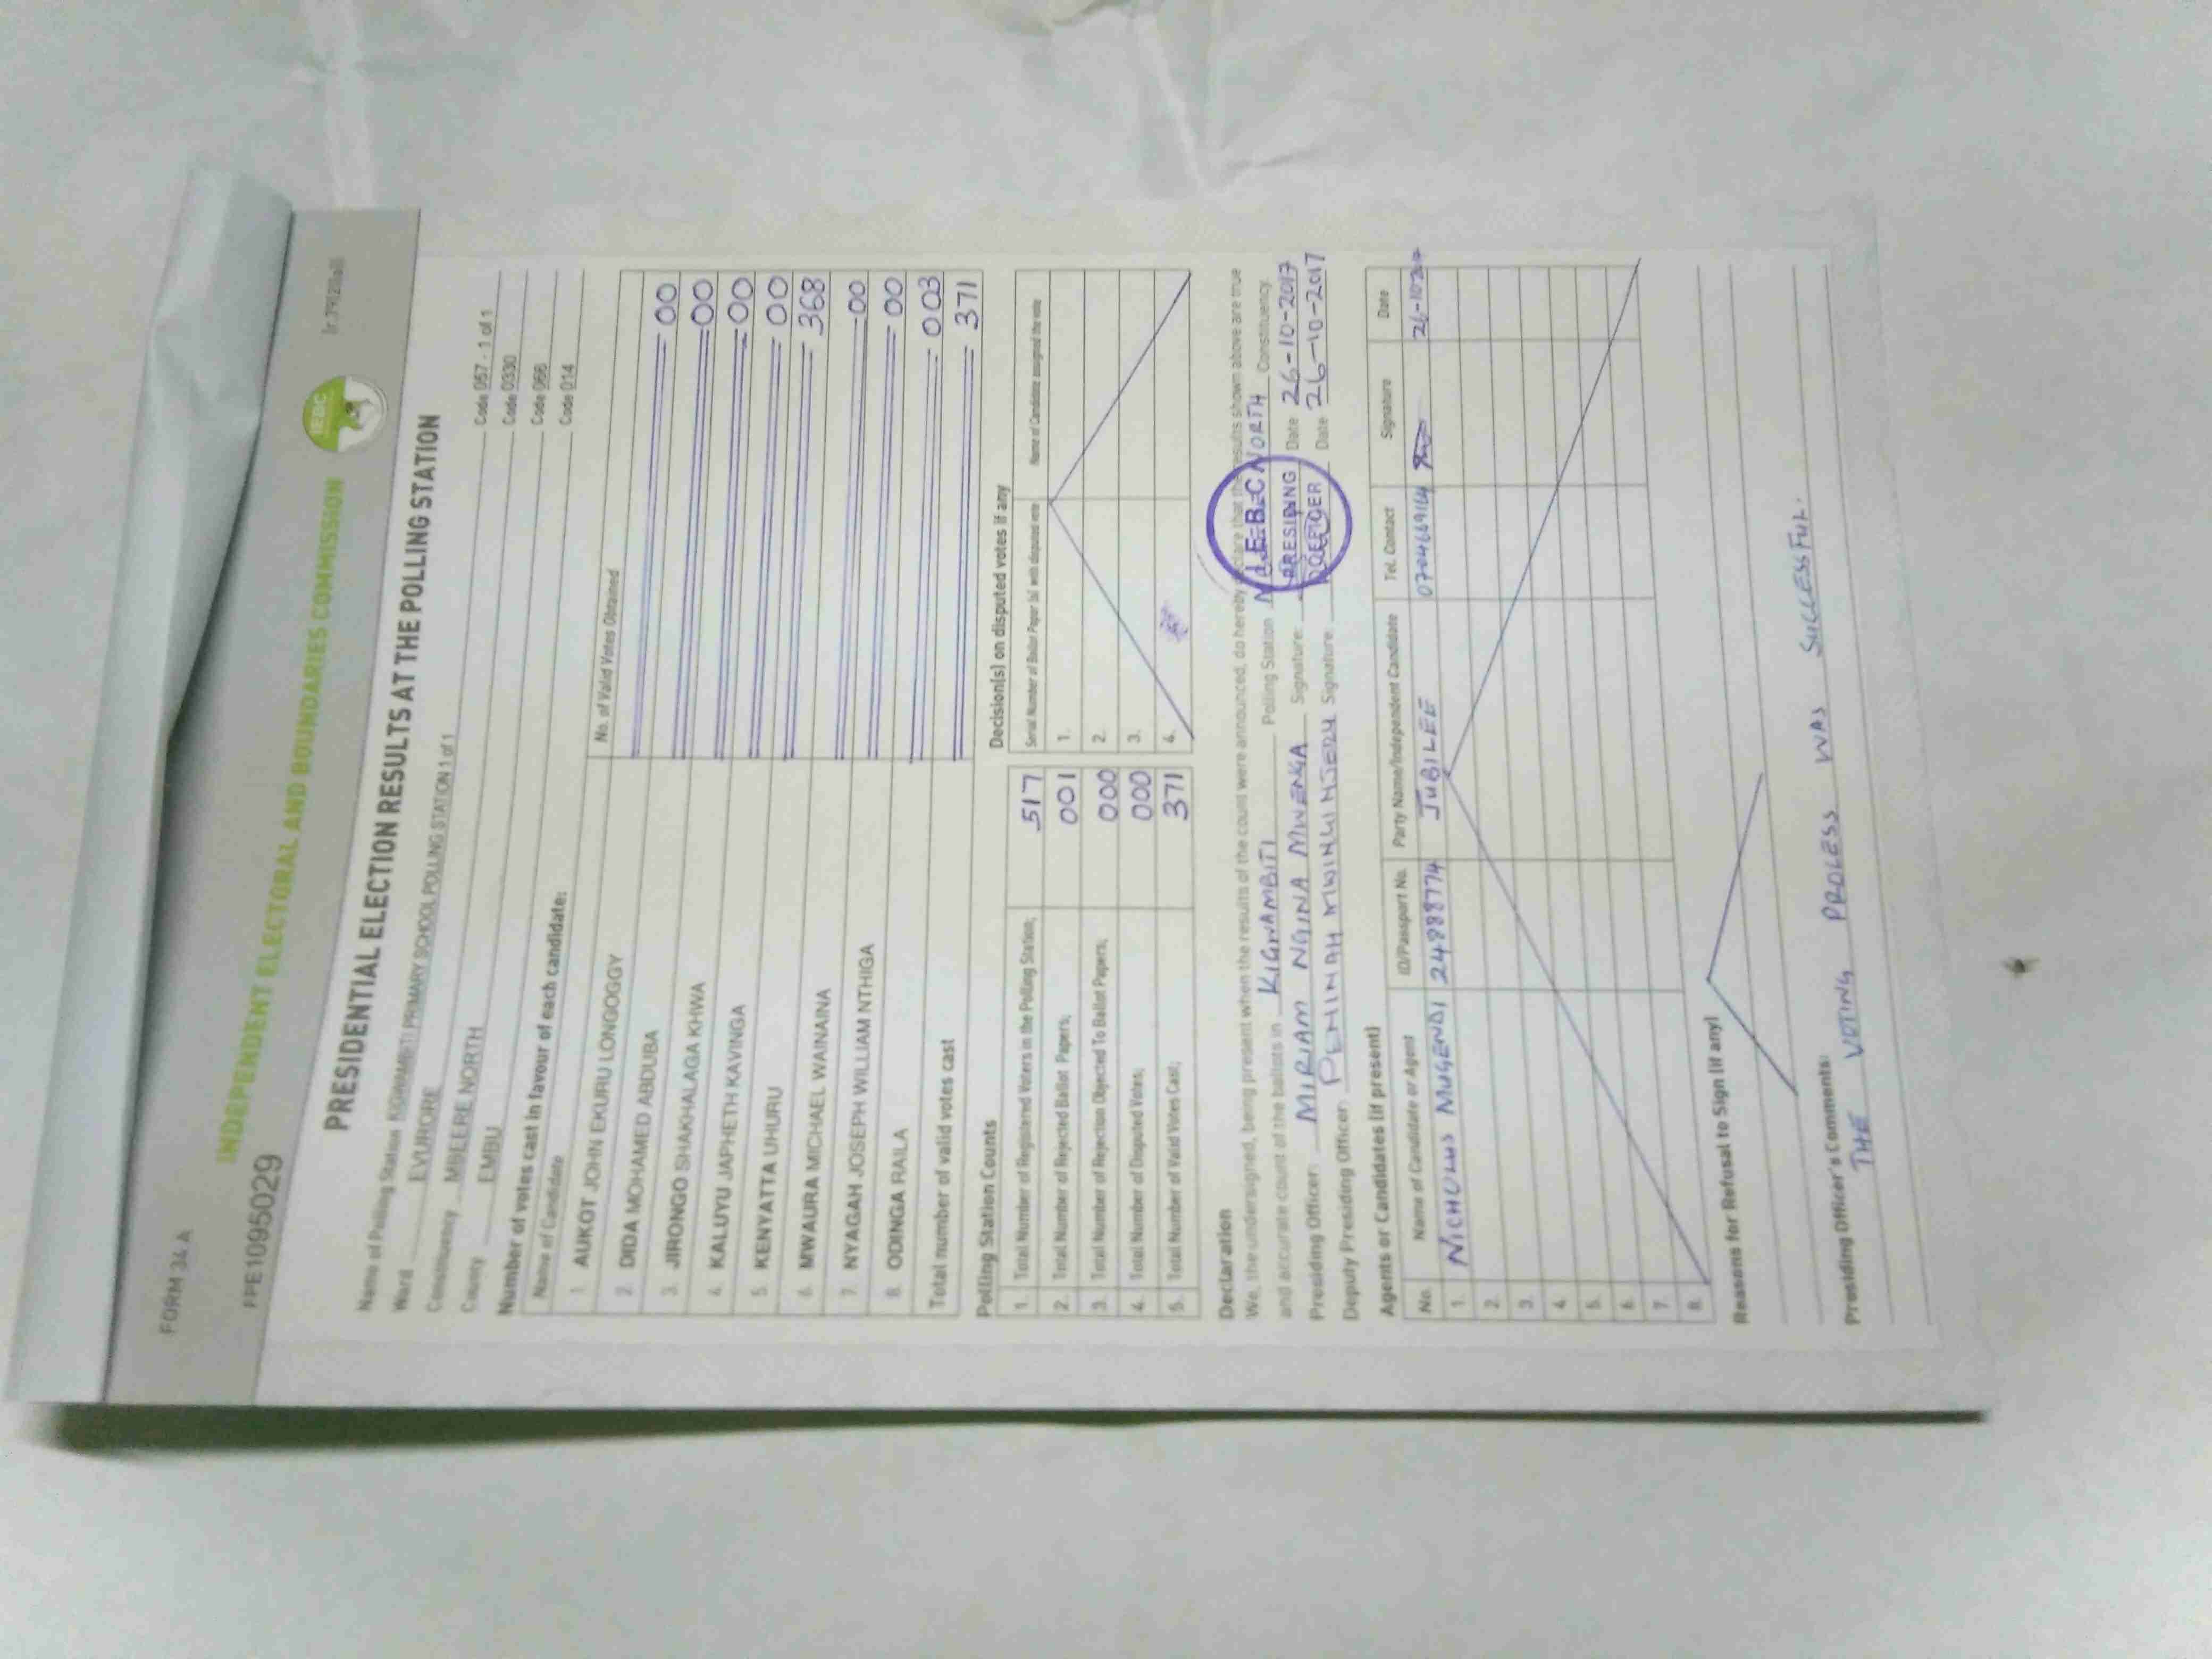 FORM 34 A
INDEPENDENT ELECTORAL AND BOUNDARIES COMMISSION
IEBC
FPE1095029
PRESIDENTIAL ELECTION RESULTS AT THE POLLING STATION
Name of Polling Station KIGWAMBITI PRIMARY SCHOOL POLLING STATION 1 of 1 Code 057 - 1 of 1
Ward EVURORE Code 0330
Constituency MBEERE NORTH Code 066
County EMBU Code 014
Number of votes cast in favour of each candidate:
Name of Candidate No. of Valid Votes Obtained
1. AUKOT JOHN EKURU LONGOGGY 00
2. DIDA MOHAMED ABDUBA 00
3. JIRONGO SHAKHALAGA KHWA 00
4. KALUYU JAPHETH KAVINGA 00
5. KENYATTA UHURU 368
6. MWAURA MICHAEL WAINAINA 00
7. NYAGAH JOSEPH WILLIAM NTHIGA 00
8. ODINGA RAILA 003
Total number of valid votes cast 371
Polling Station Counts
1. Total Number of Registered Voters in the Polling Station; 517
2. Total Number of Rejected Ballot Papers; 001
3. Total Number of Rejection Objected To Ballot Papers; 000
4. Total Number of Disputed Votes; 000
5. Total Number of Valid Votes Cast; 371
Decision(s) on disputed votes if any
Serial Number of Ballot Paper (s) with disputed vote Name of Candidate assigned the vote
1.
2.
3.
4.
Declaration
We, the undersigned, being present when the results of the count were announced, do hereby declare that the results shown above are true
and accurate count of the ballots in KIGWAMBITI Polling Station NORTH Constituency.
Presiding Officer: MIRIAM NGINA MWENGA Signature: Date 26-10-2017
Deputy Presiding Officer: PENINAH Signature: Date 26-10-2017
I.E.B.C
PRESIDING
OFFICER
Agents or Candidates (if present)
No. Name of Candidate or Agent ID/Passport No. Party Name/Independent Candidate Tel. Contact Signature Date
1. NICHOLUS MUGENDI 24888774 JUBILEE 26-10-2017
2.
3.
4.
5.
6.
7.
8.
Reasons for Refusal to Sign (if any)
Presiding Officer's Comments:
THE VOTING PROCESS WAS SUCCESSFUL.